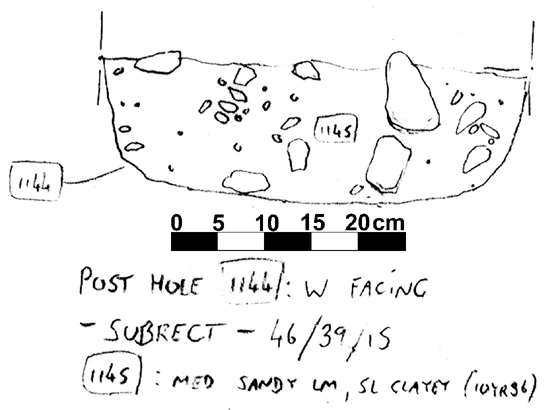 1145
1144
0 5 10 15 20cm
POST HOLE 1144: W FACING
- SUBRECT - 46/39/15
1145 : MED SANDY LM, SL CLAYEY (10YR36)